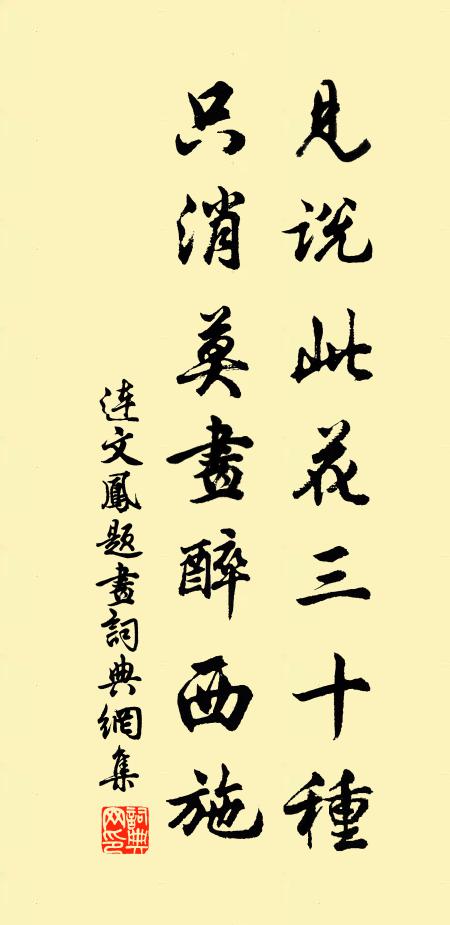 見說此花三十種
只消莫畫醉西施
連文鳳題畫詞典網集
詞典网印